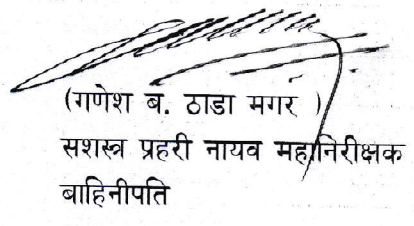 (गणेश ब. ठाडा मगर )
सशस्त्र प्रहरी नायव महानिरीक्षक
बाहिनीपति